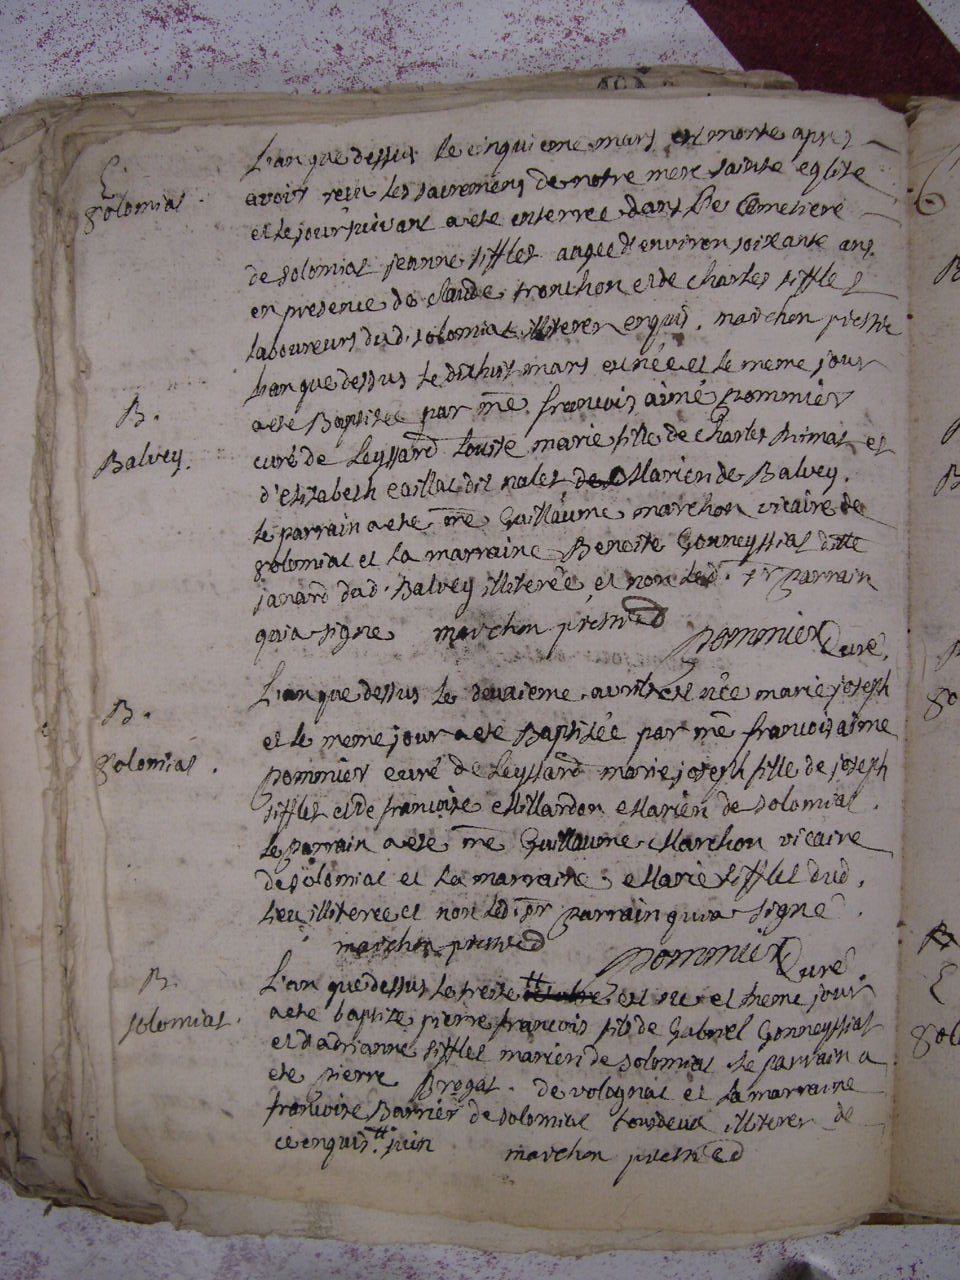 E.
Solomiat.
L'an que dessus le cinquieme mars est morte apres
avoir receu les sacremens de notre mere sainte eglise
et le jour suivant a ete enterree dans le Cemetiere
de solomiat jeanne sifflet aagee d'environ soixante ans
en presence de claude tronchon et de charles sifflet
laboureurs dud. solomiat illiteres enquis. marchon prestre
B.
Balvey.
L'an que dessus le dixhuit mars est née et le meme jour
a ete Baptisée par mre francois aimé Pommier
curé de Leyssard Louise marie fille de charles et
d'elizabeth dit nalet Marien de Balvey.
le parrain a ete mre Guillaume marchon vicaire de
solomiat et la marraine Benoite Gonneyssiat ditte
janard dud. Balvey illiterée et non led. sr parrain
qui a signe marchon prestre
Pommier Curé.
B.
Solomiat.
L'an que dessus le deuxieme avril est née marie joseph
et le meme jour a ete Baptisée par mre francois aime
Pommier curé de Leyssard marie joseph fille de joseph
sifflet et de francoise Millardon Marien de solomiat.
le parrain a ete mre Guillaume Marchon vicaire
de solomiat et la marraine Marie sifflet dud.
lieu illiteree et non led. sr parrain qui a signé.
marchon prestre
Pommier Curé.
B.
solomiat.
L'an que dessus le treise est ne et meme jour
a ete baptise pierre francois fils de Gabriel Gonneyssiat
et d'adrianne sifflet marien de solomiat le parrain a
ete pierre Brogat. de volognat et la marraine
francoise Barrier de solomiat tous deux illiteres de
ce enquis. # juin marchon prestre